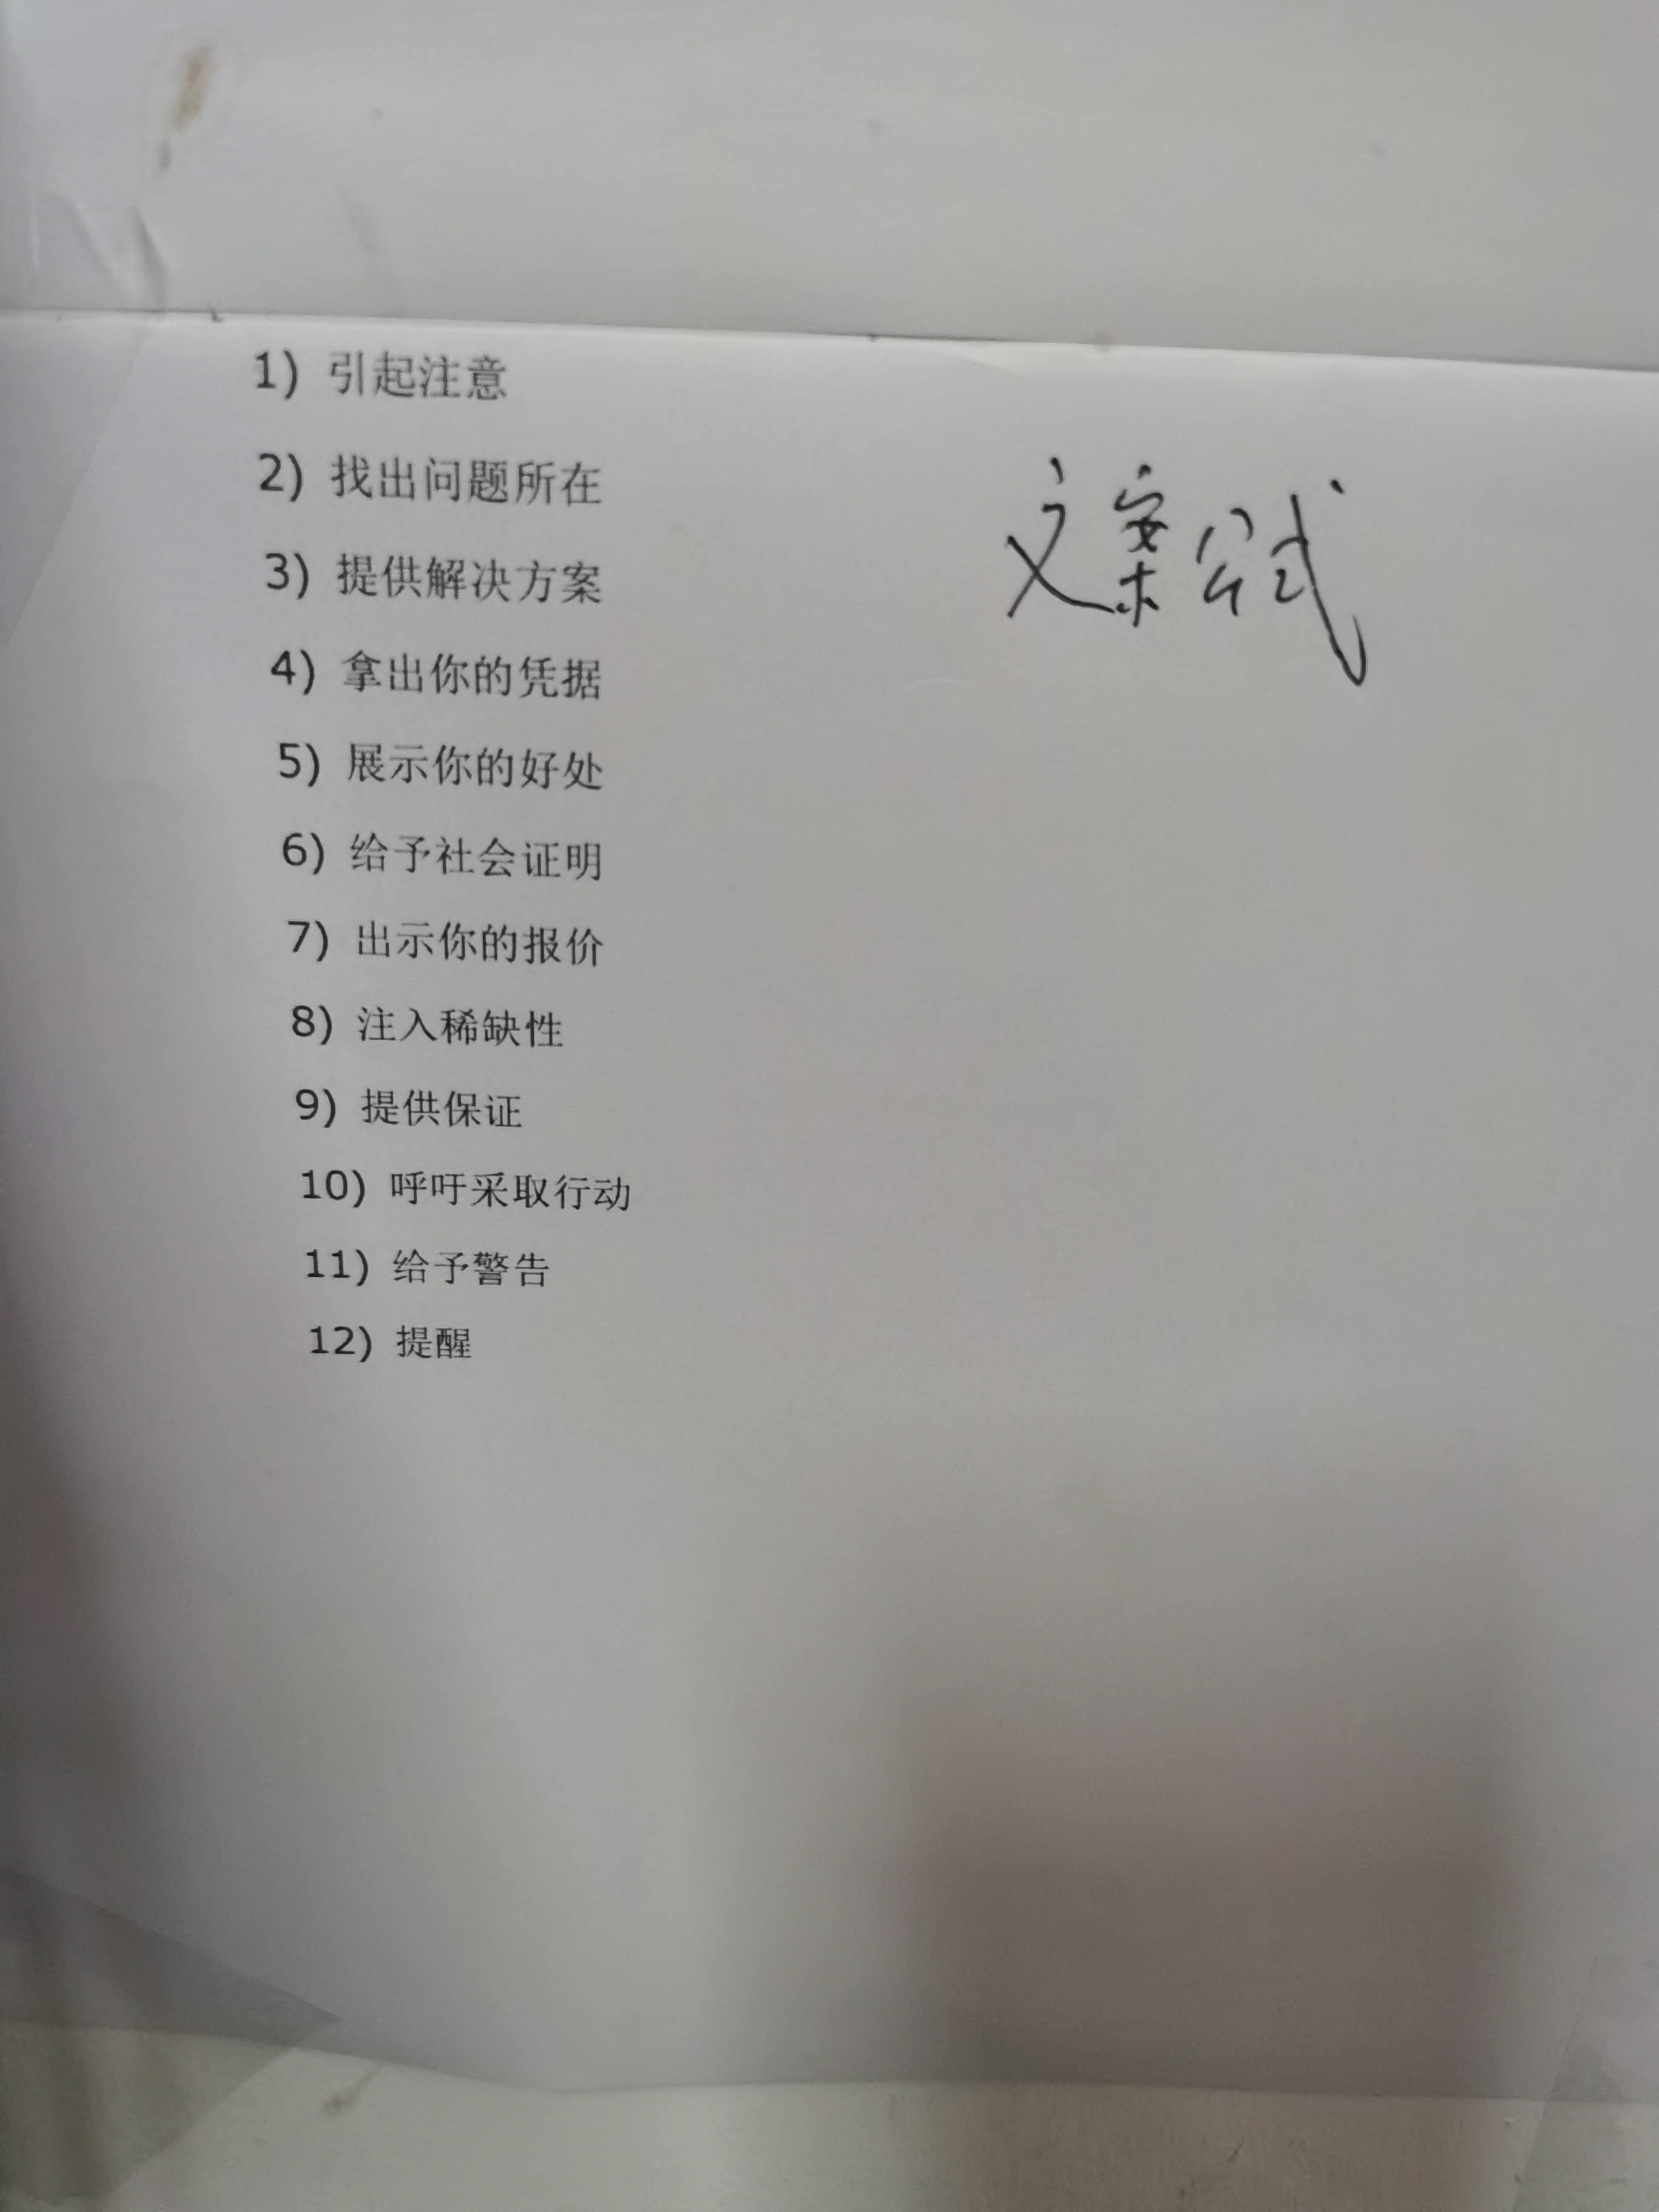 1) 引起注意
2) 找出问题所在
文案公式
3) 提供解决方案
4) 拿出你的凭据
5) 展示你的好处
6) 给予社会证明
7) 出示你的报价
8) 注入稀缺性
9) 提供保证
10) 呼吁采取行动
11) 给予警告
12) 提醒